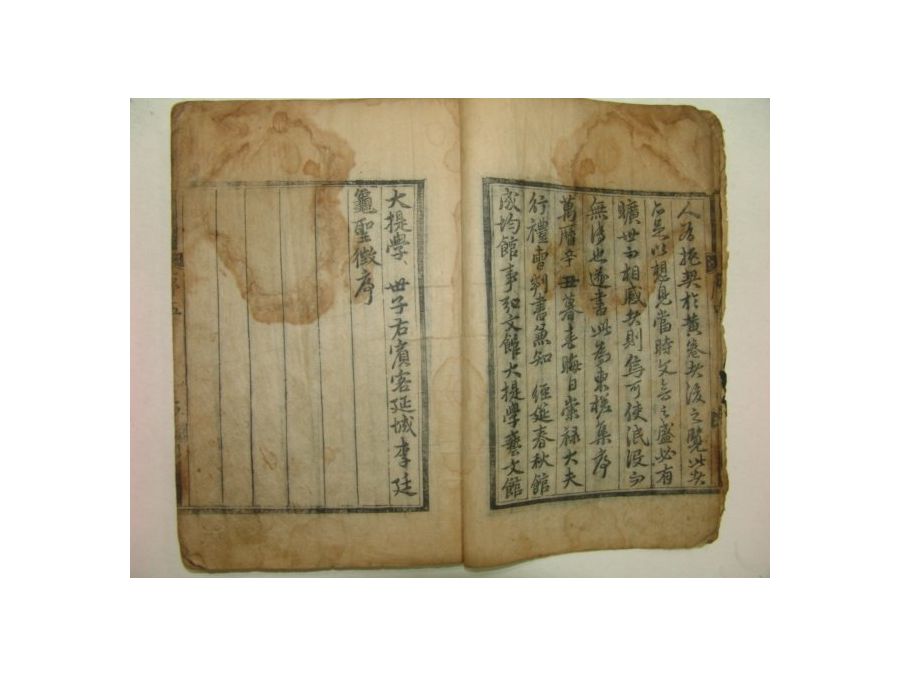 人為托契於黃卷者後之覽此者
占是以想見當時文章之盛必有
曠世而相感者則烏可使泯沒而
無傳也遂書此為東槎集序
萬曆辛丑暮春晦日崇祿大夫
行禮曹判書兼知 經筵春秋館
成均館事弘文館大提學藝文館
大提學 世子右賓客延城李廷
龜聖徵序